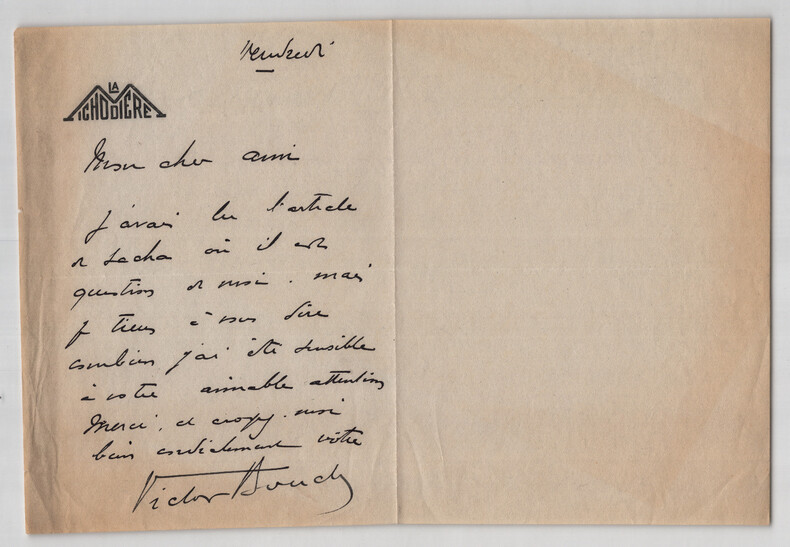 Vendredi
LA
MICHODIERE
Mon cher ami
J'avais lu l'article
de Sacha où il est
question de moi. mais
je tiens à vous dire
combien j'ai été sensible
à votre aimable attention
Merci, et croyez moi
bien cordialement vôtre
Victor Boucher